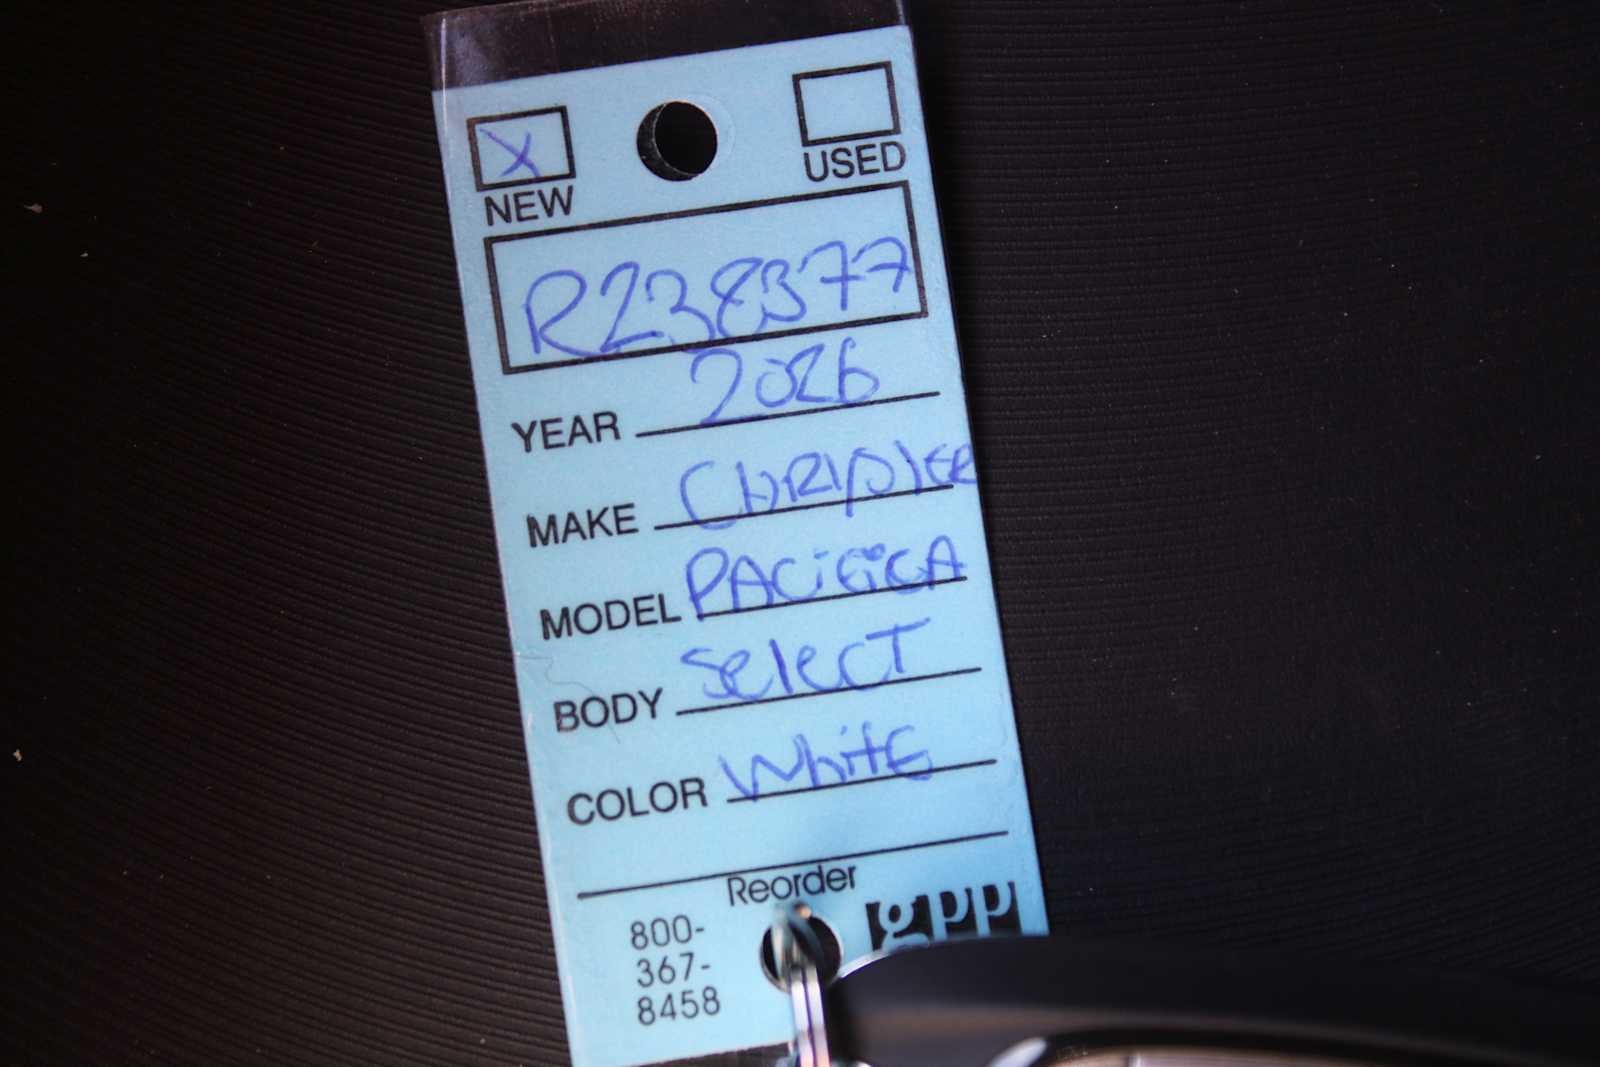 X
NEW USED
R238377
YEAR 2026
MAKE CHRIDLER
MODEL PACiFiCA
BODY SelecT
COLOR WhitE
Reorder
800-
367-
8458
gpp